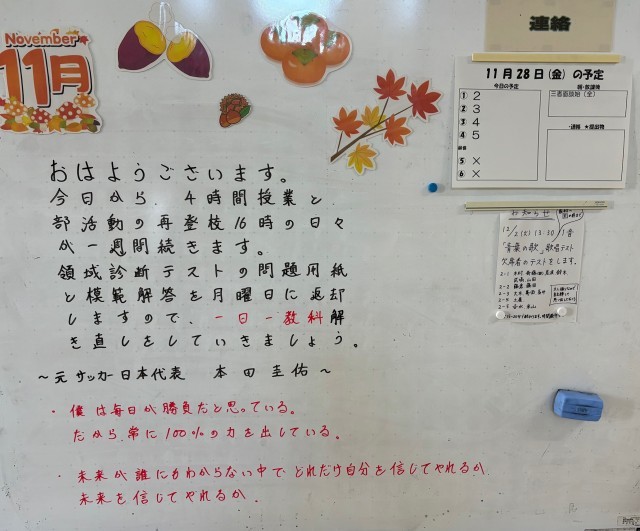 November
11月
おはようございます。
今日から、4時間授業と
部活動の再登校16時の日々
が一週間続きます。
領域診断テストの問題用紙
と模範解答を月曜日に返却
しますので、一日一教科解
き直しをしていきましょう。
～元サッカー日本代表 本田圭佑～
・僕は毎日が勝負だと思っている。
だから、常に100%の力を出している。
・未来が誰にもわからない中でどれだけ自分を信じてやれるか
未来を信じてやれるか.
連絡
11月28日(金)の予定
今日の予定
① 2
② 3
③ 4
④ 5
⑤ ×
⑥ ×
三者面談始(全)
お知らせ
12/2(火) 13:30 1音
「青葉の歌」歌唱テスト
欠席者のテストをします。
2-1
2-2
2-3
2-4
2-5